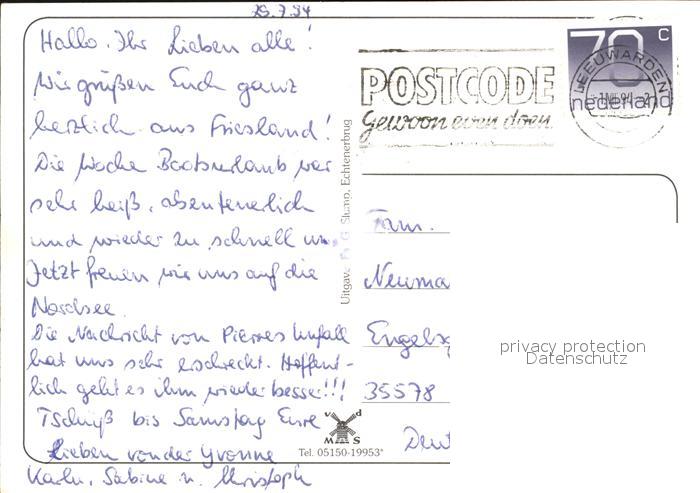 29.7.94
Hallo, Ihr Lieben alle!
Wir grüßen Euch ganz
herzlich aus Friesland!
Die Woche Bootsurlaub war
sehr heiß, abenteuerlich
und wieder zu schnell um.
Jetzt freuen wir uns auf die
Nordsee.
Die Nachricht von Pierres Unfall
hat uns sehr erschreckt. Hoffent-
lich geht es ihm wieder besser!!!
Tschüß bis Samstag Eure
Lieben von der Yvonne
Karln, Sabine u. Christoph
Uitgave: G. Stump, Echtenerbrug
v d
M S
Tel. 05150-19953*
POSTCODE
gewoon even doen
LEEUWARDEN
70 c
nederland
Fam.
Neuma
Engels
35578
Deut
privacy protection
Datenschutz